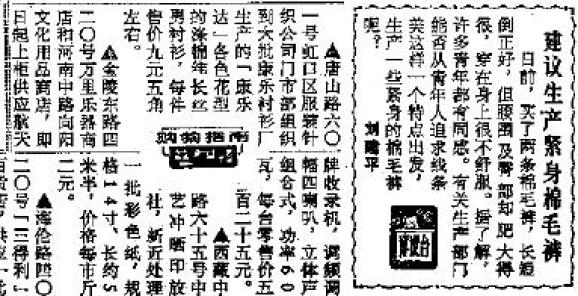 建议生产紧身棉毛裤
日前，买了两条棉毛裤，长短
倒正好，但腰围及臀部却肥大得
很，穿在身上很不舒服。据了解，
许多青年都有同感。有关生产部门
能否从青年人追求线条
美这样一个特点出发，
生产一些紧身的棉毛裤
呢？
刘建平
购物指南
▲唐山路六〇
一号虹口区服装针
织公司门市部组织
到大批康乐衬衫厂
生产的「康乐
达」各色花型
的涤棉纬长丝
男衬衫，每件
售价九元五角
左右。
▲金陵东路四
二〇号万里乐器商
店和河南中路向阳
文化用品商店，即
日起上柜供应航天
牌收录机，调频调
幅四喇叭，立体声
组合式，功率60
瓦，每台零售价五
百二十五元。
▲西藏中
路六十五号中
艺冲晒印放
社，新近处理
一批彩色纸，规
格14寸，长约5
米半，价格每市斤
二元。
▲海伦路四〇
二〇号「三得利」